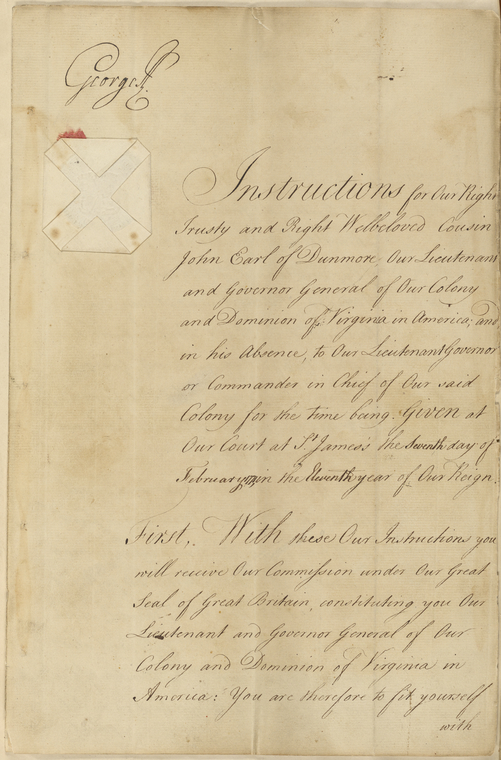 George R.
Instructions for Our Right
Trusty and Right Welbeloved Cousin
John Earl of Dunmore, Our Lieutenant
and Governor General of Our Colony
and Dominion of Virginia in America; and
in his Absence, to Our Lieutenant Governor
or Commander in Chief of Our said
Colony for the time being. Given at
Our Court at St. James's the Seventh day of
February in the Eleventh year of Our Reign.
First, With these Our Instructions you
will receive Our Commission under Our Great
Seal of Great Britain, constituting you Our
Lieutenant and Governor General of Our
Colony and Dominion of Virginia in
America: You are therefore to fit yourself
with